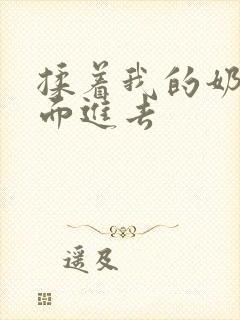 揉着我的奶
而进去
遥及